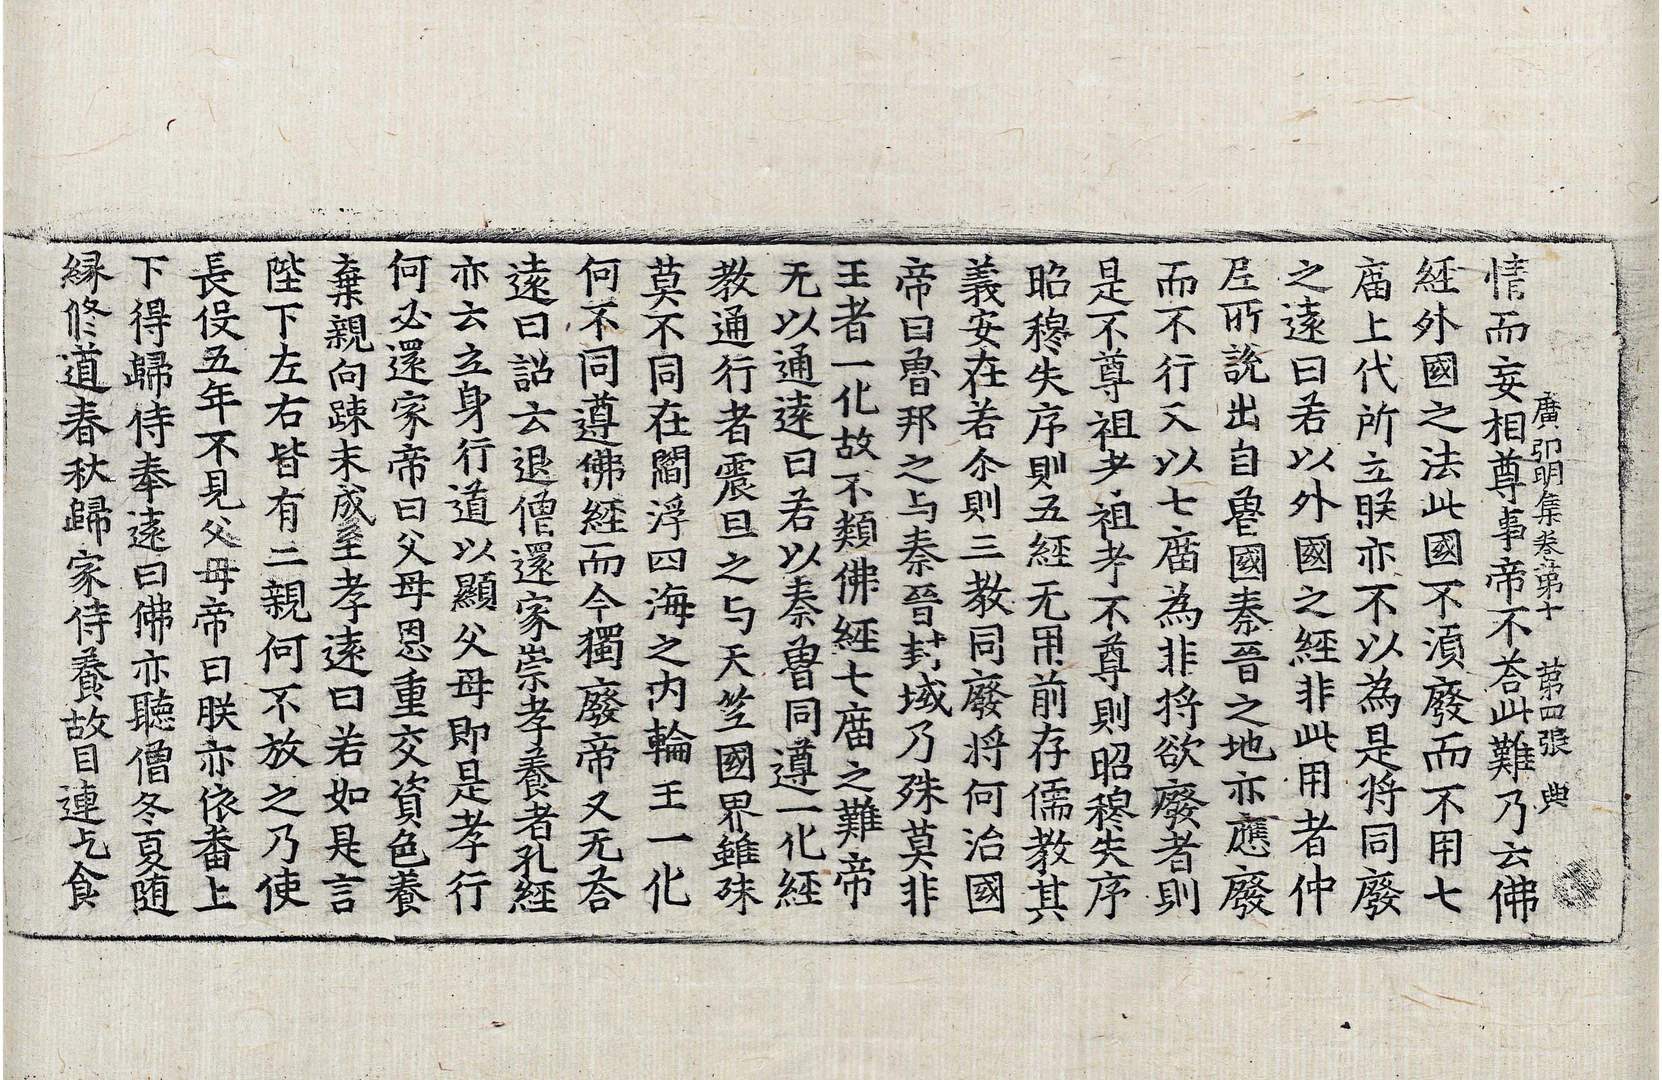 廣弘明集卷第十 第四張 典
情而妄相尊事帝不荅此難乃云佛
經外國之法此國不湏廢而不用七
庿上代所立朕亦不以為是将同廢
之遠曰若以外國之經非此用者仲
尼所說出自魯國秦晉之地亦應廢
而不行又以七庿為非将欲廢者則
是不尊祖考祖考不尊則昭穆失序
昭穆失序則五經无用前存儒教其
義安在若尒則三教同廢将何治國
帝曰魯邦之与秦晉封域乃殊莫非
王者一化故不類佛經七庿之難帝
无以通遠曰若以秦魯同遵一化經
教通行者震旦之与天竺國界雖殊
莫不同在閻浮四海之内輪王一化
何不同遵佛經而今獨廢帝又无荅
遠曰詔云退僧還家崇孝養者孔經
亦云立身行道以顯父母即是孝行
何必還家帝曰父母恩重交資色養
棄親向踈未成至孝遠曰若如是言
陛下左右皆有二親何不放之乃使
長役五年不見父母帝曰朕亦依番上
下得歸侍奉遠曰佛亦聽僧冬夏随
緣修道春秋歸家侍養故目連乞食